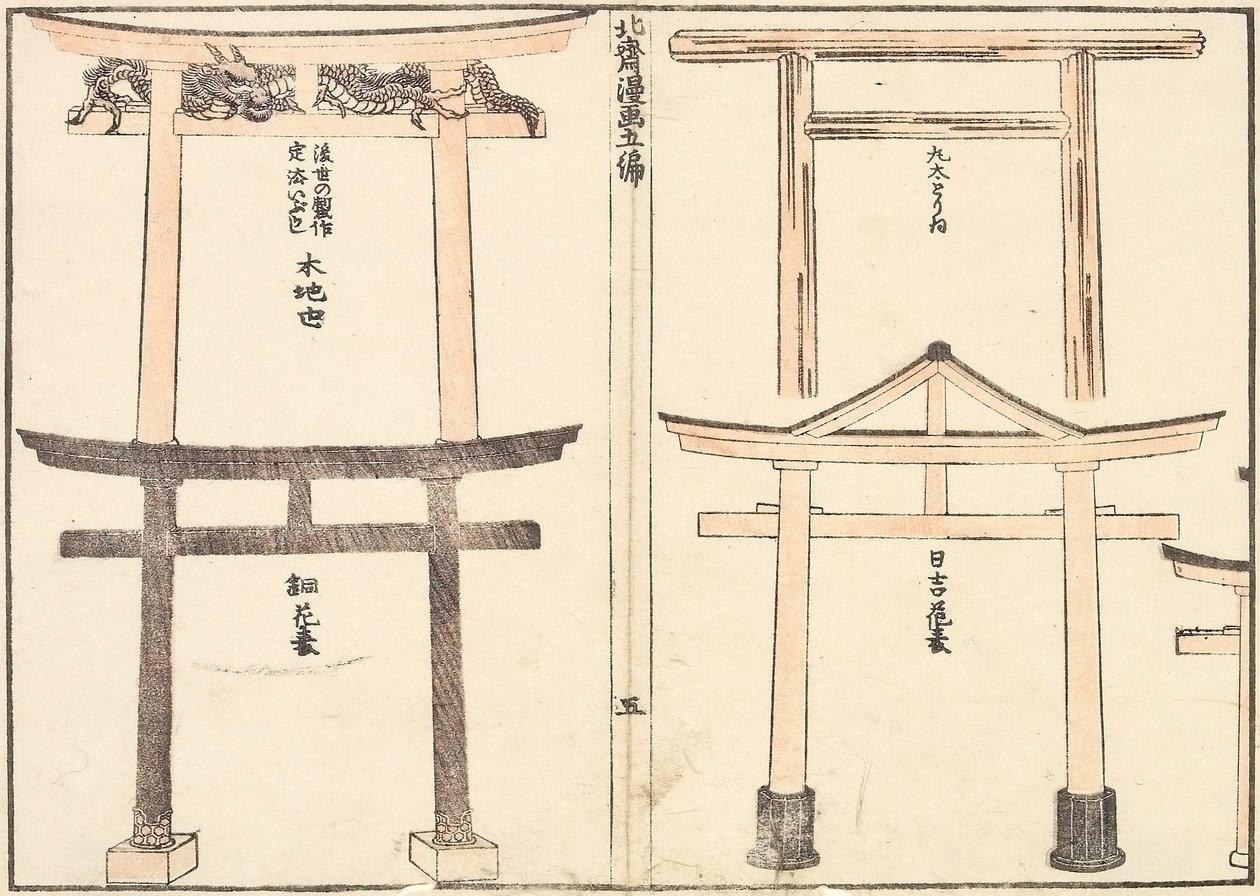 丸太とりゐ
日吉花表
北齋漫画五編
五
後世の製作
定法
木地也
銅花表